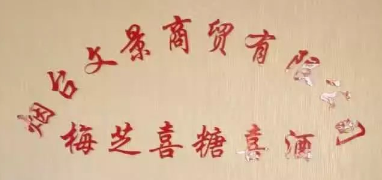 烟台文景商贸有限公司
梅芝喜糖喜酒